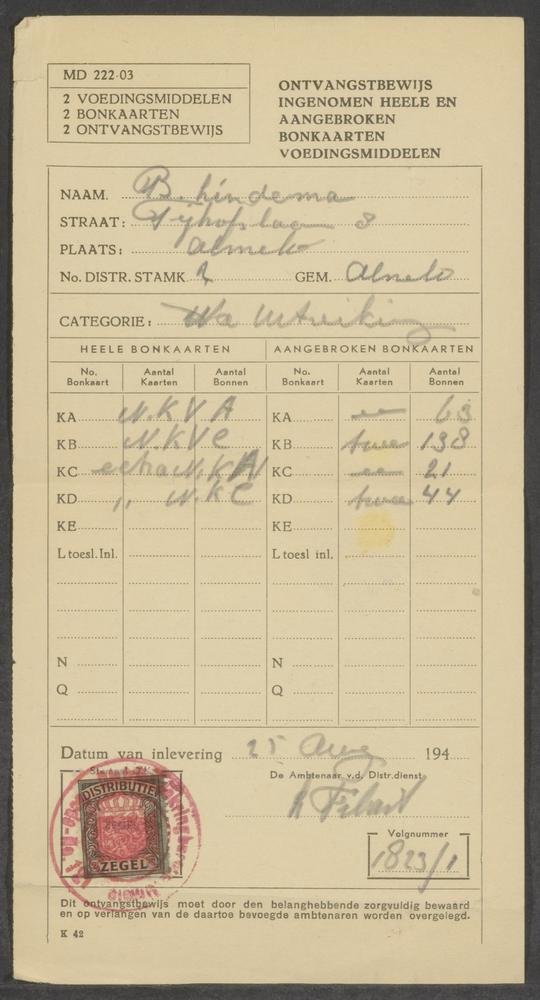 MD 222-03
2 VOEDINGSMIDDELEN
2 BONKAARTEN
2 ONTVANGSTBEWIJS
ONTVANGSTBEWIJS
INGENOMEN HEELE EN
AANGEBROKEN
BONKAARTEN
VOEDINGSMIDDELEN
NAAM. B. hindema
STRAAT: 8
PLAATS: Almelo
No. DISTR. STAMK 2 GEM. Almelo
CATEGORIE: Uitreiking
HEELE BONKAARTEN AANGEBROKEN BONKAARTEN
No. Bonkaart Aantal Kaarten Aantal Bonnen No. Bonkaart Aantal Kaarten Aantal Bonnen
KA N.K V A KA een 63
KB N.K V C KB twee 138
KC extra N.K A KC een 21
KD ,, N.K C KD twee 44
KE KE
L toesl. Inl. L toesl inl.
N N
Q Q
Datum van inlevering 25 Aug 194
De Ambtenaar v.d. Distr.dienst
DISTRIBUTIE
ZEGEL
Volgnummer
1823/1
Dit ontvangstbewijs moet door den belanghebbende zorgvuldig bewaard
en op verlangen van de daartoe bevoegde ambtenaren worden overgelegd.
K 42